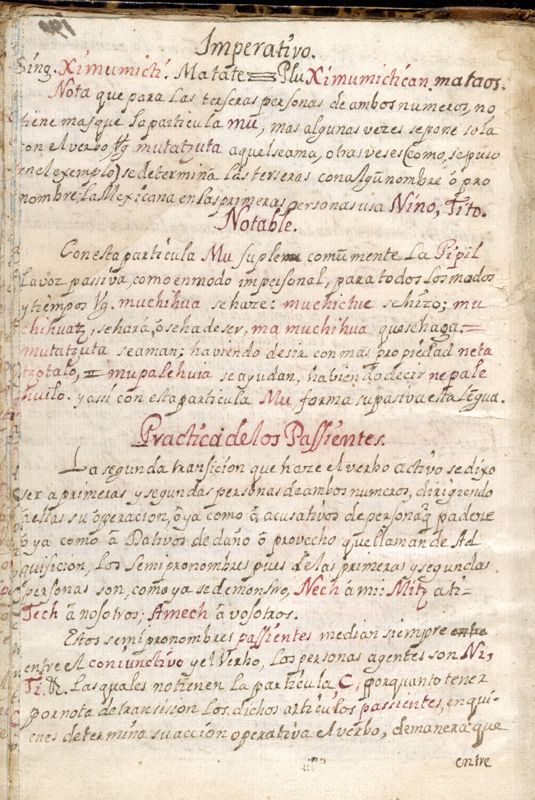 Imperativo.
Sing. Ximumichi. Matate = Plu Ximumichican. mataos.
Nota que para las terseras personas de ambos numeros, no
tiene mas que la particula mu, mas algunas vezes se pone sola
con el verbo, Vg mutatzuta aquel se ama, otras veses (como, se puso
en el exemplo) se determina las terseras con algũ nombre ô pro
nombre; la Mexicana en las primeras personas usa Nino, Tito.
Notable.
Con esta particula Mu suplen comũmente la Pipil
la voz passiva, como en modo impersonal, para todos los modos
y tiempos Vg. muchihua se haze: muchictuc se hizo; mu
chihuatz, se hará, ô se ha de ser, ma muchihua que se haga =
mutatzuta se aman; haviendo desir con mas propiedad neta
tzotalo, = mupalehuia se ayudan, habiendo decir nepale
huilo. y assi con esta particula Mu forma su pasiva esta legua.
Practica de los Passientes.
La segunda transicion que haze el verbo activo se dixo
ser a primeras y segundas personas de ambos numeros, dirigiendo
a ellas su operacion, ô ya como â acusativos de persona q̃ padece
ô ya como â Dativos de daño ô provecho que llaman de Ad
quisicion, los semipronombres pues de las primeras y segundas
personas son, como ya se demonstro, Nech â mi: Mitz a ti-
Tech â nosotros; Amech â vosotros.
Estos semipronombres passientes median siempre entre
entre el coniunctivo y el Verbo, Las personas agentes son Ni,
Ti. &. Las quales no tienen la particula C, porquanto tener
por nota de transission los dichos articulos passientes, en qui-
enes determina su accion operativa el verbo, de manera que
entre